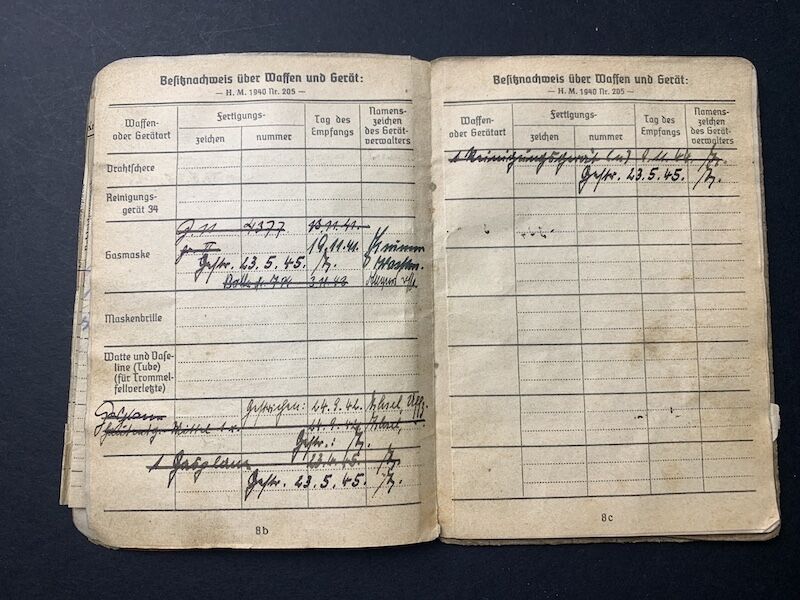 Besitznachweis über Waffen und Gerät:
— H. M. 1940 Nr. 205 —
Waffen-
oder Gerätart
Fertigungs-
zeichen
nummer
Tag des
Empfangs
Namens-
zeichen
des Gerät-
verwalters
Drahtschere
Reinigungs-
gerät 34
4377 13.11.41.
19.11.41.
Gasmaske
Gestr. 23.5.45.
3.11.42
Maskenbrille
Watte und Vase-
line (Tube)
(für Trommel-
fellverletzte)
Gestrichen: 24.9.42.
Gasplane
24.9.42.
Gestr.:
1 Gasplane 23.4.45.
Gestr. 23.5.45.
8b
Besitznachweis über Waffen und Gerät:
— H. M. 1940 Nr. 205 —
Waffen-
oder Gerätart
Fertigungs-
zeichen
nummer
Tag des
Empfangs
Namens-
zeichen
des Gerät-
verwalters
1 Reinigungsgerät 9.11.44.
Gestr. 23.5.45.
8c